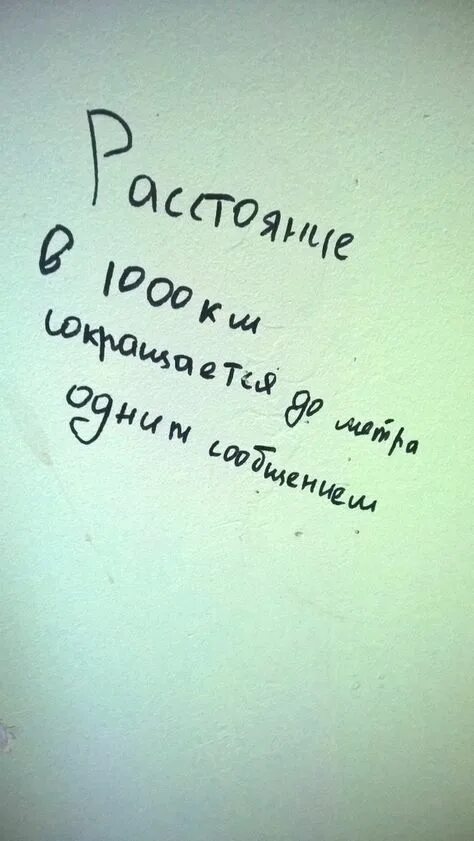 Расстояние
в 1000км
сокращается до метра
одним сообщением